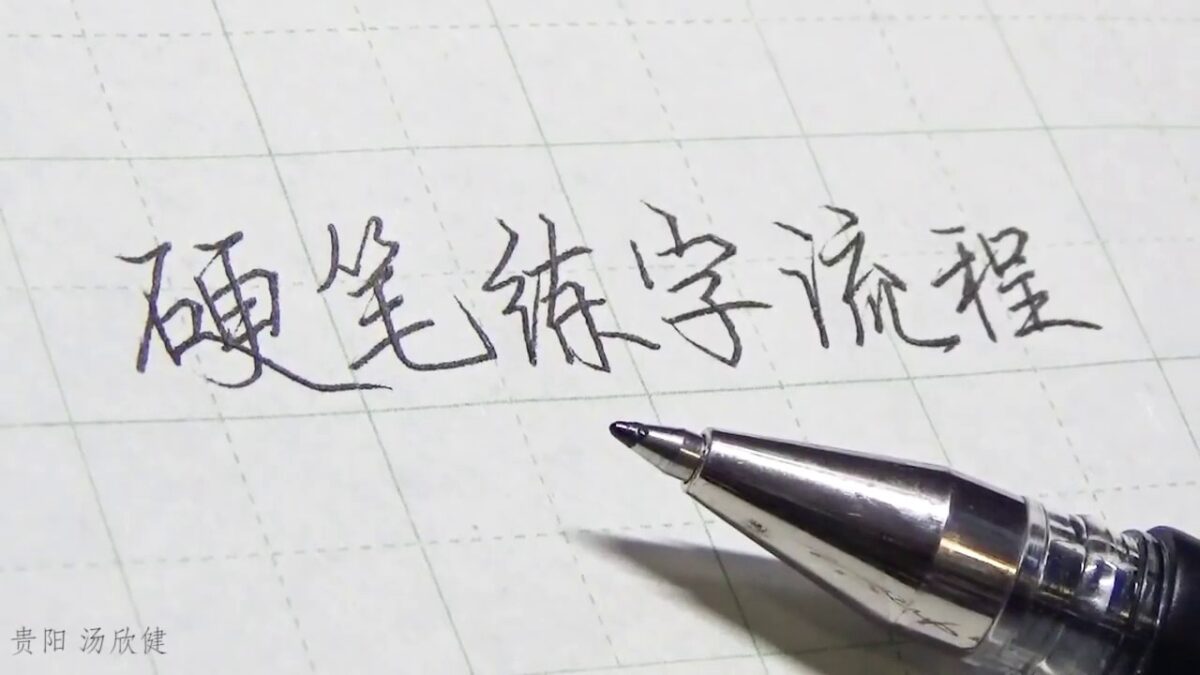 硬笔练字流程
贵阳 汤欣健